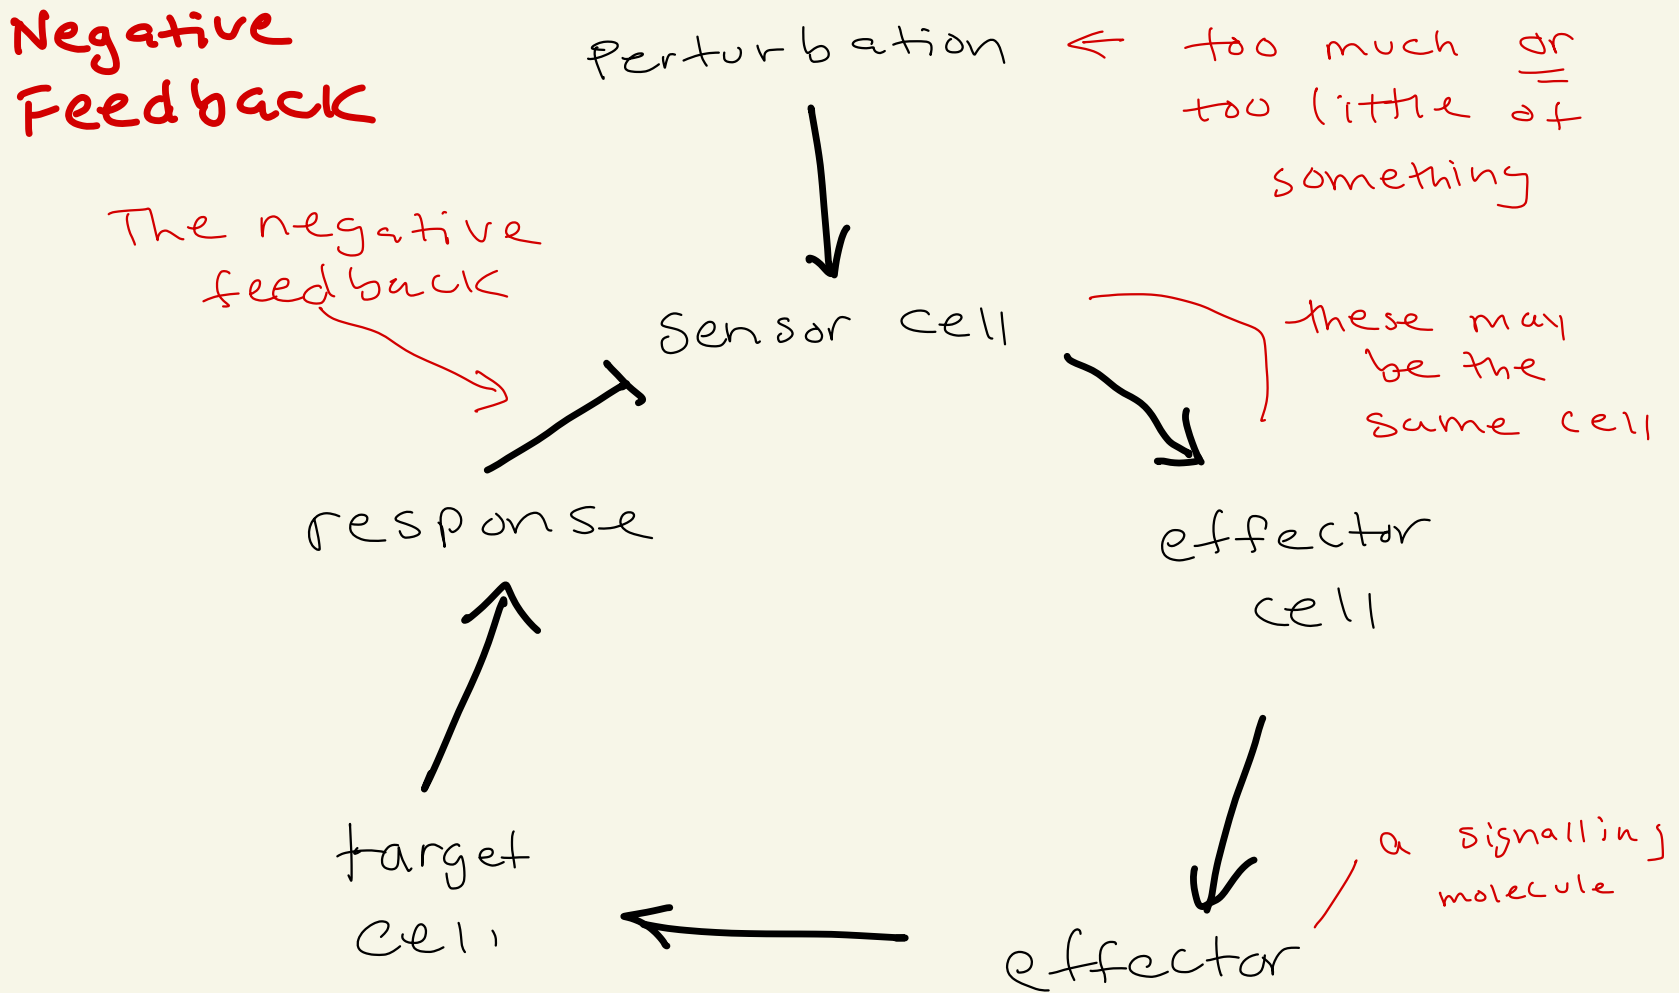 Negative
Feedback
Perturbation
too much or
too little of
something
The negative
feedback
sensor cell
these may
be the
same cell
response
effector
cell
target
cell
a signalling
molecule
effector